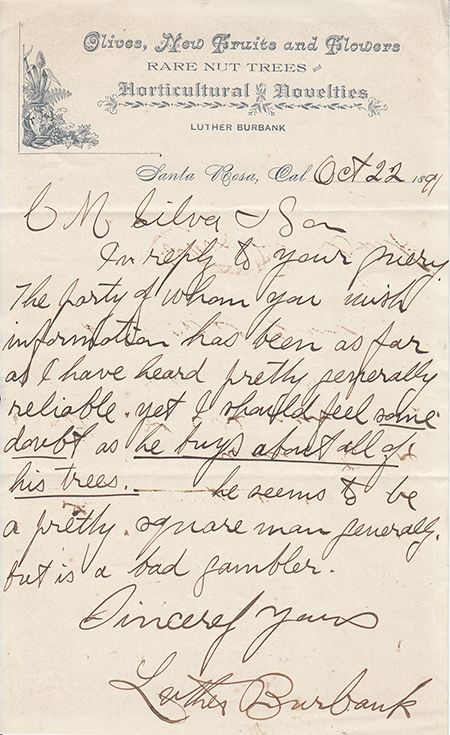 Olives, New Fruits and Flowers
RARE NUT TREES and
Horticultural Novelties
LUTHER BURBANK
Santa Rosa, Cal Oct 22 1891
C M Silva & Son
In reply to your query.
The party of whom you wish
information has been as far
as I have heard pretty generally
reliable. yet I should feel some
doubt as he buys about all of
his trees. he seems to be
a pretty square man generally.
but is a bad gambler.
Sincerely Yours
Luther Burbank